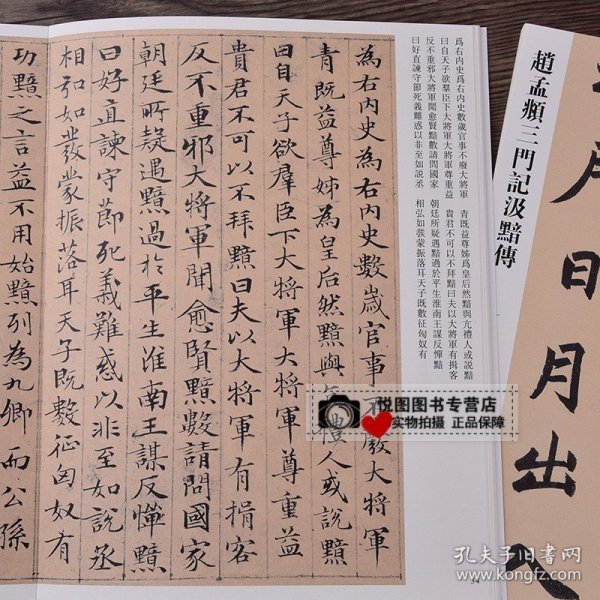 趙孟頫三門記汲黯傳
月日月出入
爲右内史爲右内史數歲官事不廢大將軍 青既益尊姊爲皇后然黯與亢禮人或說黯
曰自天子欲羣臣下大將軍大將軍尊重益 貴君不可以不拜黯曰夫以大將軍有揖客
反不重邪大將軍聞愈賢黯數請問國家 朝廷所疑遇黯過於平生淮南王謀反憚黯
曰好直諫守節死義難惑以非至如說丞 相弘如發蒙振落耳天子既數征匈奴有
為右内史為右内史數歲官事不廢大将軍
青既益尊姊為皇后然黯與禮人或說黯
曰自天子欲羣臣下大将軍大将軍尊重益
貴君不可以不拜黯曰夫以大将軍有揖客
反不重邪大将軍聞愈賢黯數請問國家
朝廷所疑遇黯過於平生淮南王謀反憚黯
曰好直諫守節死義難惑以非至如說丞
相弘如發蒙振落耳天子既數征匈奴有
功黯之言益不用始黯列為九卿而公孫
悦图图书专营店
实物拍摄 正品保障
孔夫子旧书网
www.kongfz.com